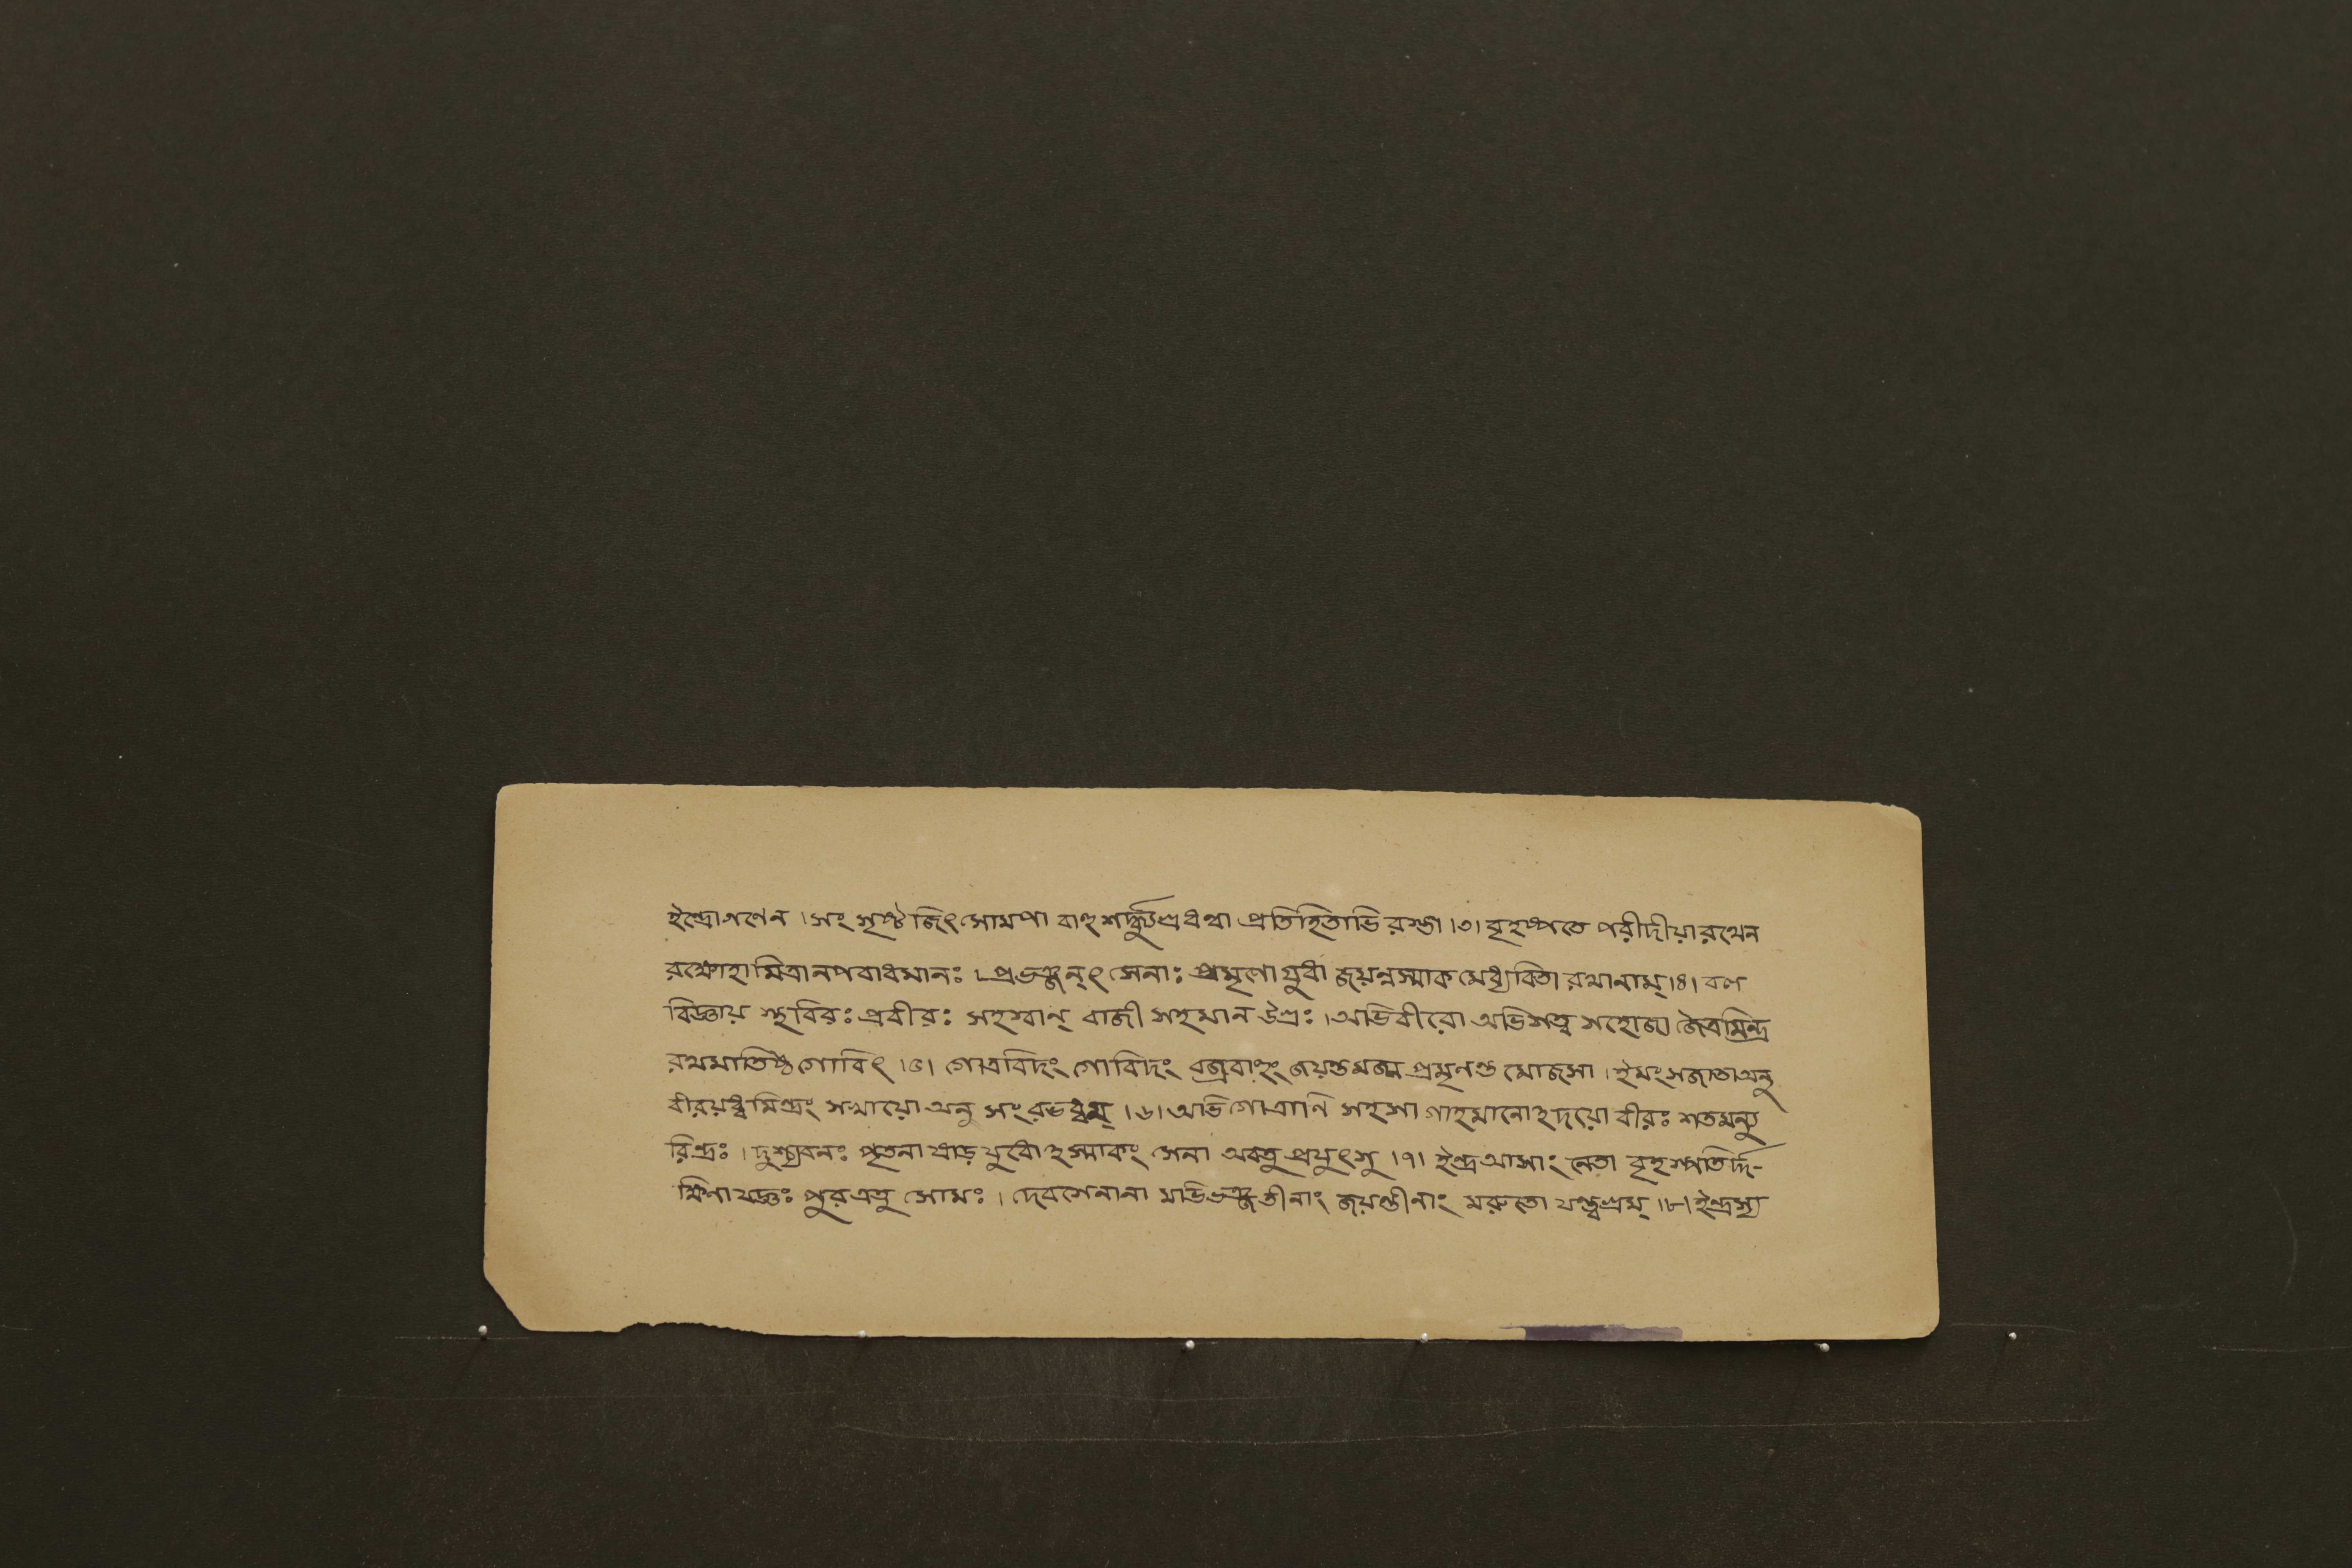 ইন্দ্রোগণেন । সং সৃষ্ট জিৎ সোমপা বাহু শর্দ্ধ্যুগ্রধন্বা প্রতিহিতাভি রস্তা ।৩। বৃহস্পতে পরীদীয়া রথেন
রক্ষোহামিত্রানপবাধমানঃ । প্রভঞ্জন্ৎ সেনাঃ প্রমৃণো যুধা জয়ন্নস্মাক মেধ্যবিতা রথানাম্ ।৪। বল
বিজ্ঞায় স্থবিরঃ প্রবীরঃ সহস্বান্ বাজী সহমান উগ্রঃ । অভিবীরো অভিসত্ব সহোজা জৈত্রমিন্দ্র
রথমাতিষ্ঠ গোবিৎ ।৫। গোত্রবিদং গোবিদং বজ্রবাহুং জয়ন্তমজ্ম প্রমৃণন্ত মোজসা । ইমং সজাতা অনু
বীরয়ধ্ব মিন্দ্রং সখায়ো অনু সং রভধ্বম্ ।৬। অভি গোত্রাণি সহসা গাহমানোহদয়ো বীরঃ শতমন্যু
রিন্দ্রঃ । দুশ্চ্যবনঃ পৃতনা ষাড় যুধ্যোহস্মাকং সেনা অবতু প্রযুৎসু ।৭। ইন্দ্র আসাং নেতা বৃহস্পতির্দ্দ-
ক্ষিণা যজ্ঞঃ পুর এতু সোমঃ । দেবসেনানা মভিভঞ্জতীনাং জয়ন্তীনাং মরুতো যন্ত্বগ্রম্ ।৮। ইন্দ্রস্য